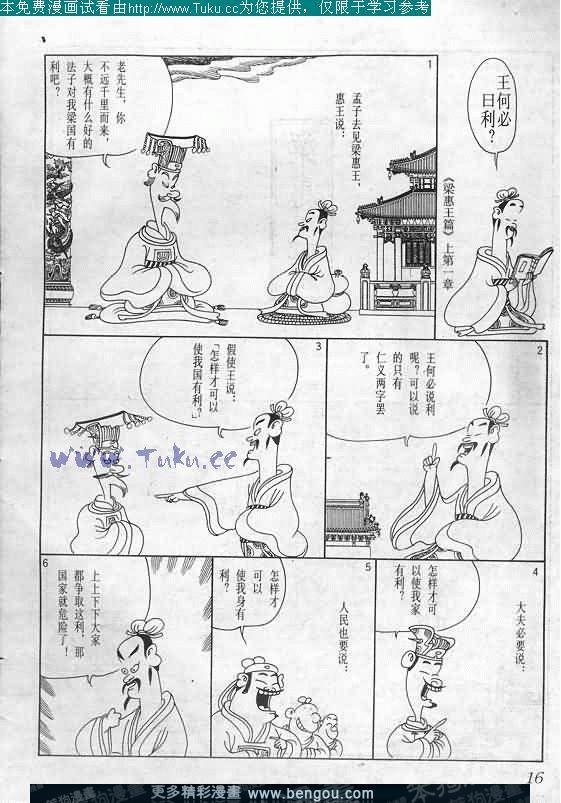 本免费漫画试看由http://www.Tuku.cc为您提供，仅限于学习参考
王何必
曰利？
《梁惠王篇》上第一章
1
孟子去见梁惠王，
惠王说：
老先生，你
不远千里而来，
大概有什么好的
法子对我梁国有
利吧？
2
王何必说利
呢？可以说
的只有
仁义两字罢
了。
3
假使王说：
「怎样才可以
使我国有利？」
www.Tuku.cc
4
大夫必要说：
怎样才可
以使我家
有利？
5
人民也要说：
怎样才
可以
使我身有
利？
6
上上下下大家
都争取这利，那
国家就危险了！
16
更多精彩漫畫 www.bengou.com